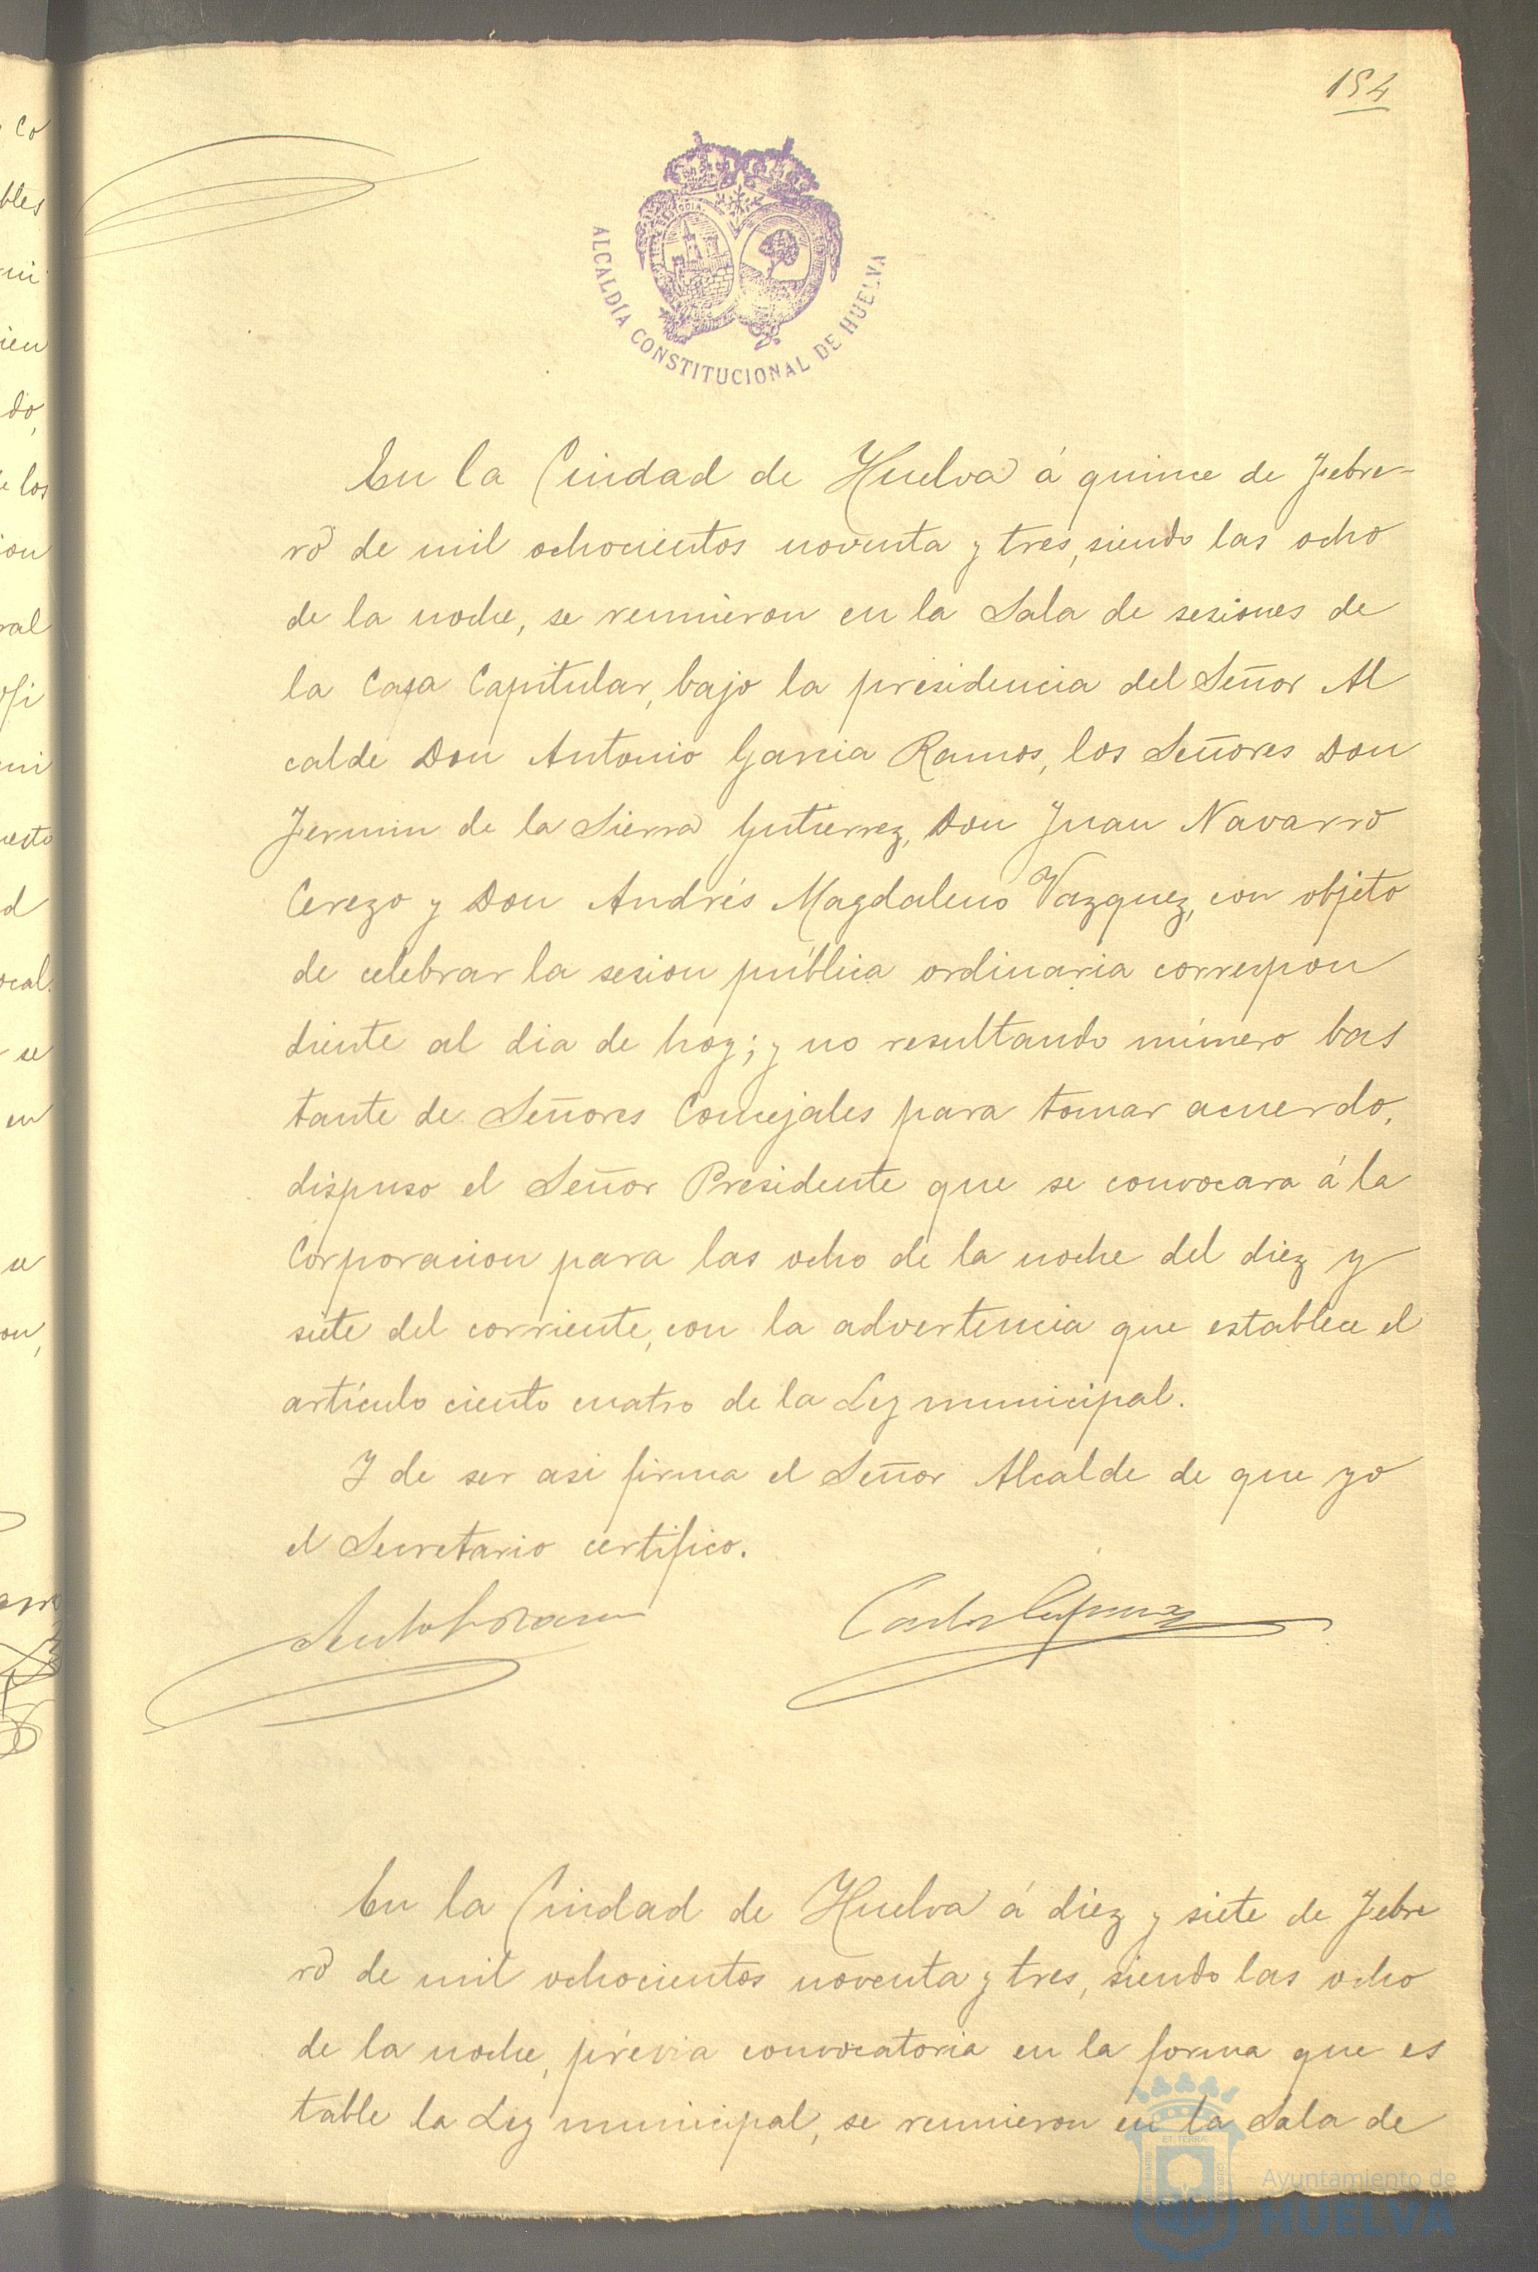 154
ALCALDÍA CONSTITUCIONAL DE HUELVA
En la Ciudad de Huelva á quince de Febre-
ro de mil ochocientos noventa y tres, siendo las ocho
de la noche, se reunieron en la Sala de sesiones de
la Casa Capitular, bajo la presidencia del Señor Al
calde Don Antonio Garcia Ramos, los Señores Don
Fermin de la Sierra Gutierrez, Don Juan Navarro
Cerezo y Don Andrés Magdaleno Vazquez, con objeto
de celebrar la sesion pública ordinaria correspon
diente al dia de hoy; y no resultando número bas
tante de Señores Concejales para tomar acuerdo,
dispuso el Señor Presidente que se convocara á la
Corporacion para las ocho de la noche del diez y
siete del corriente, con la advertencia que establece el
artículo ciento cuatro de la Ley municipal.
Y de ser asi firma el Señor Alcalde de que yo
el Secretario certifico.
En la Ciudad de Huelva á diez y siete de Febre
ro de mil ochocientos noventa y tres, siendo las ocho
de la noche, prévia convocatoria en la forma que es
table la Ley municipal, se reunieron en la Sala de
Ayuntamiento de
HUELVA